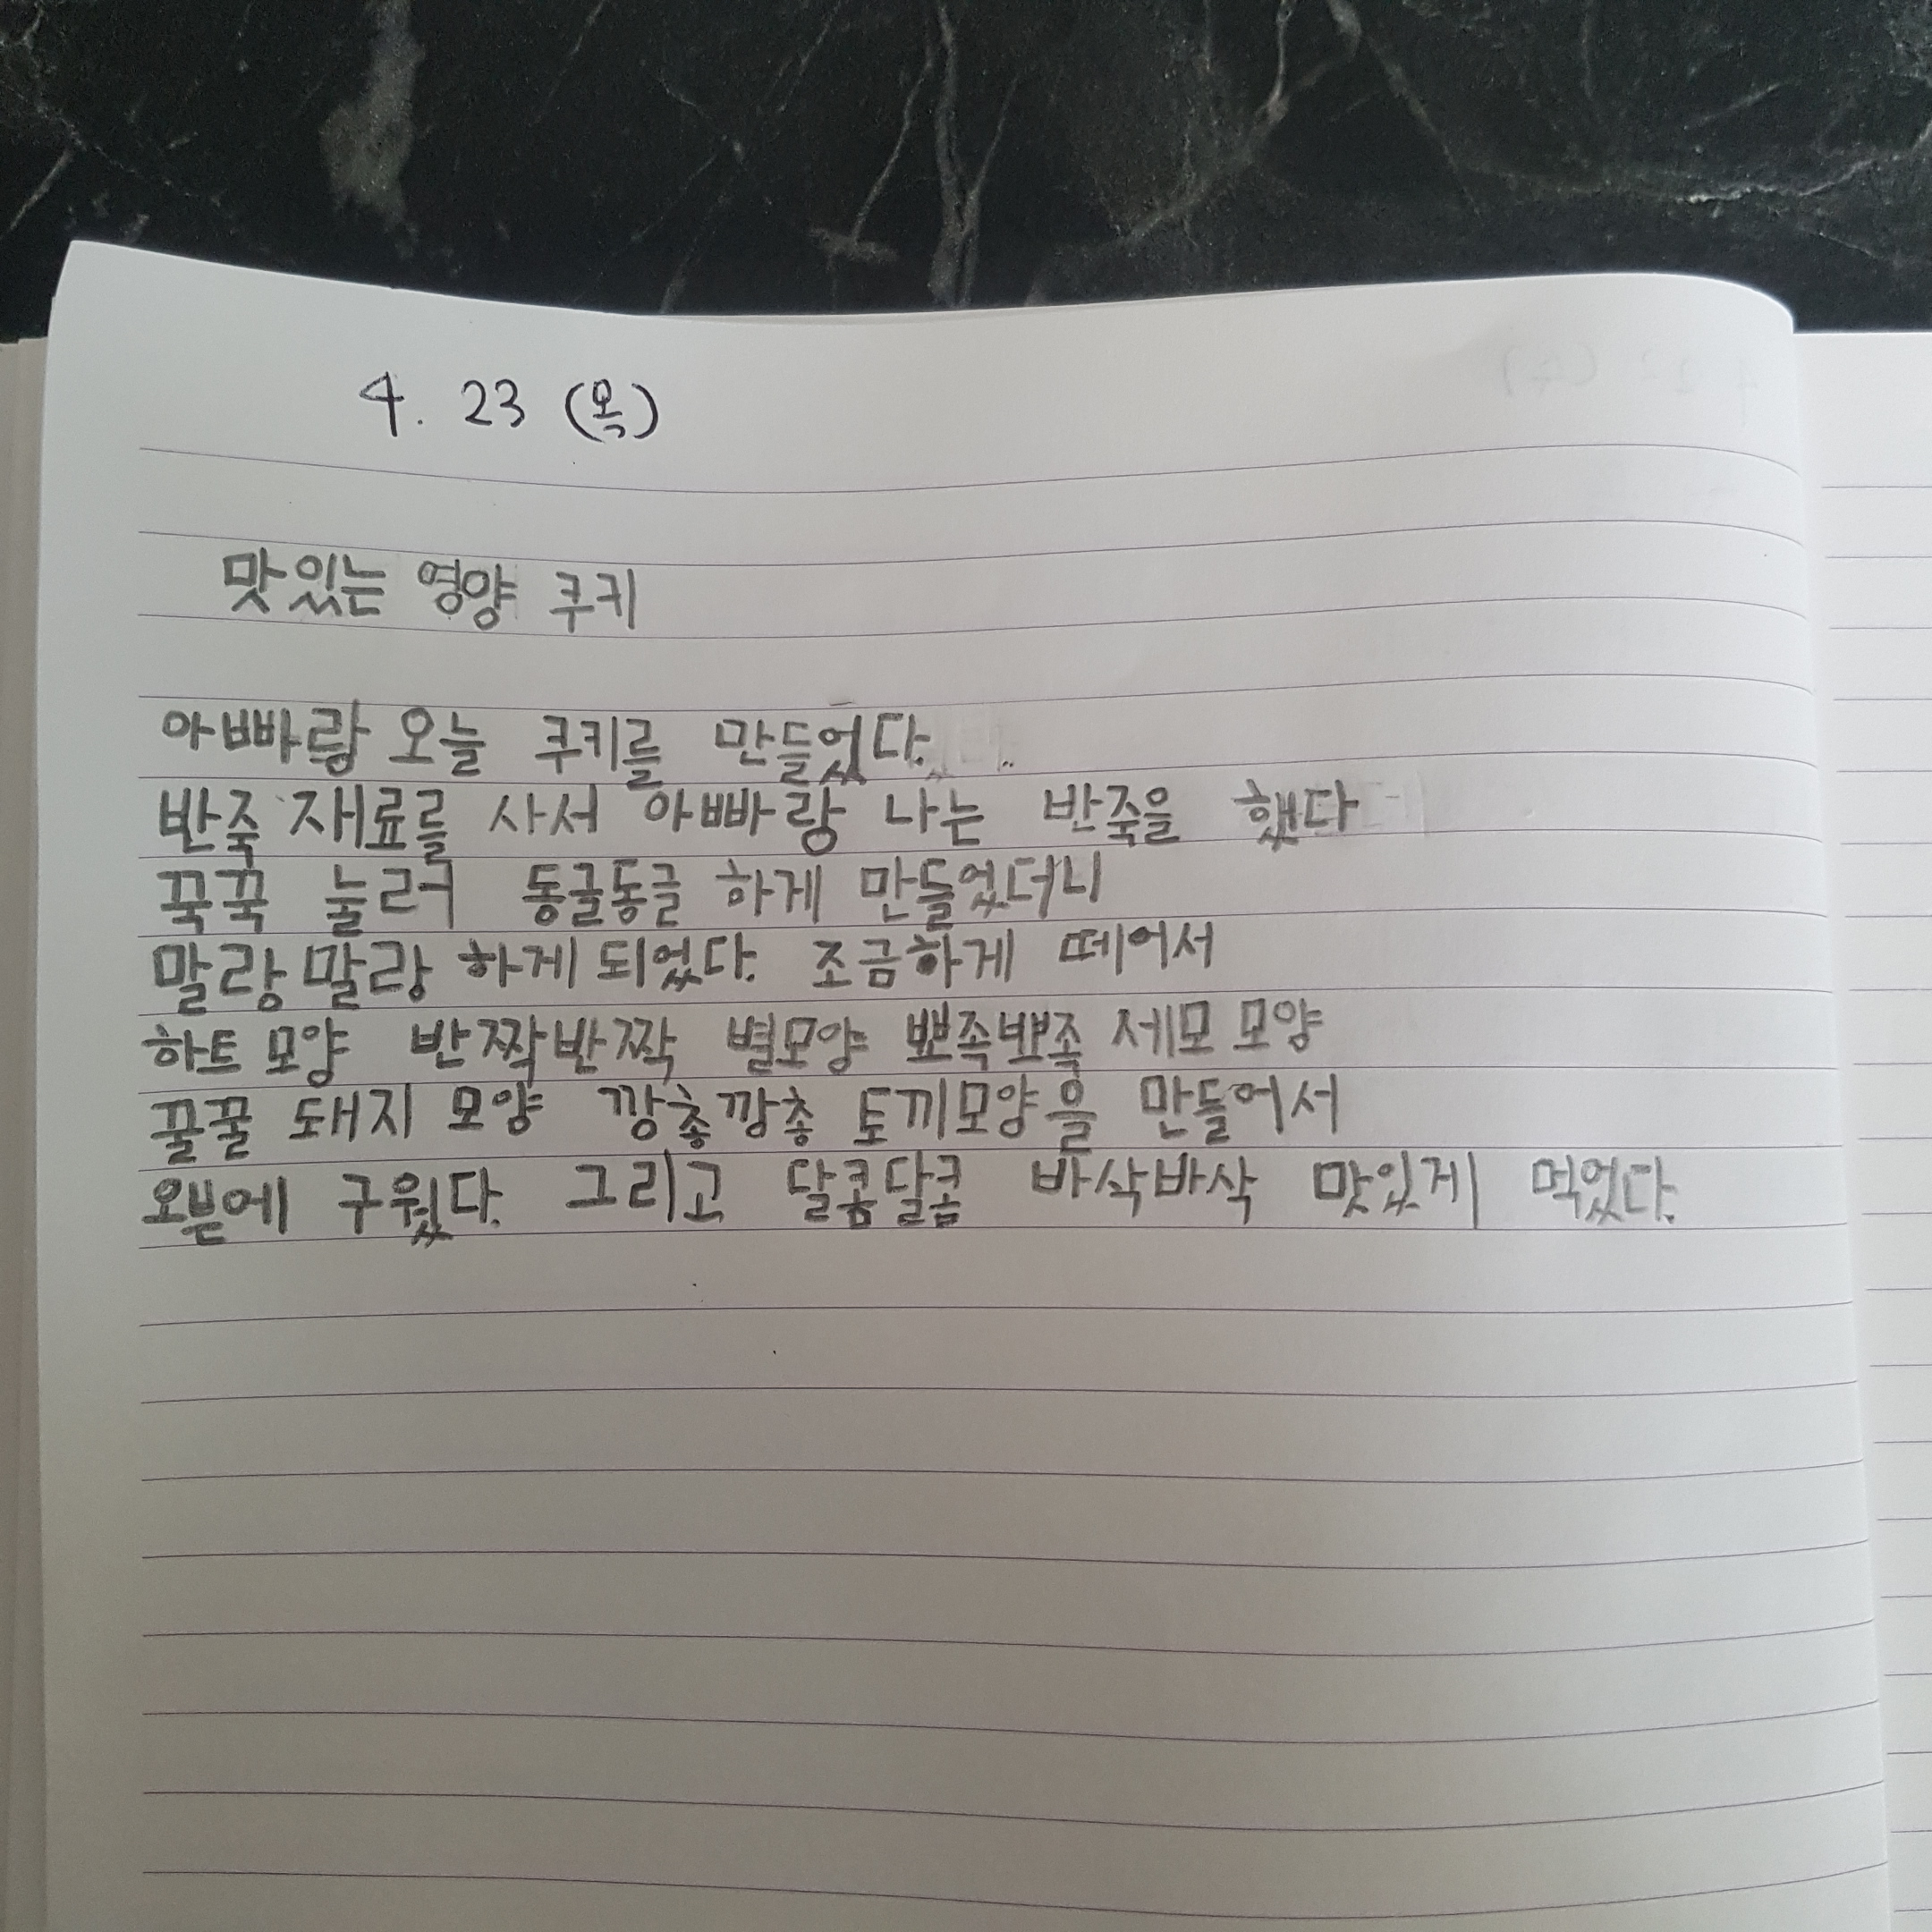 4. 23 (목)
맛있는 영양 쿠키
아빠랑 오늘 쿠키를 만들었다.
반죽 재료를 사서 아빠랑 나는 반죽을 했다
꾹꾹 눌러 동글동글 하게 만들었더니
말랑말랑 하게 되었다. 조금하게 떼어서
하트 모양 반짝반짝 별모양 뾰족뾰족 세모 모양
꿀꿀 돼지 모양 깡총깡총 토끼모양을 만들어서
오븐에 구웠다. 그리고 달콤달콤 바삭바삭 맛있게 먹었다.